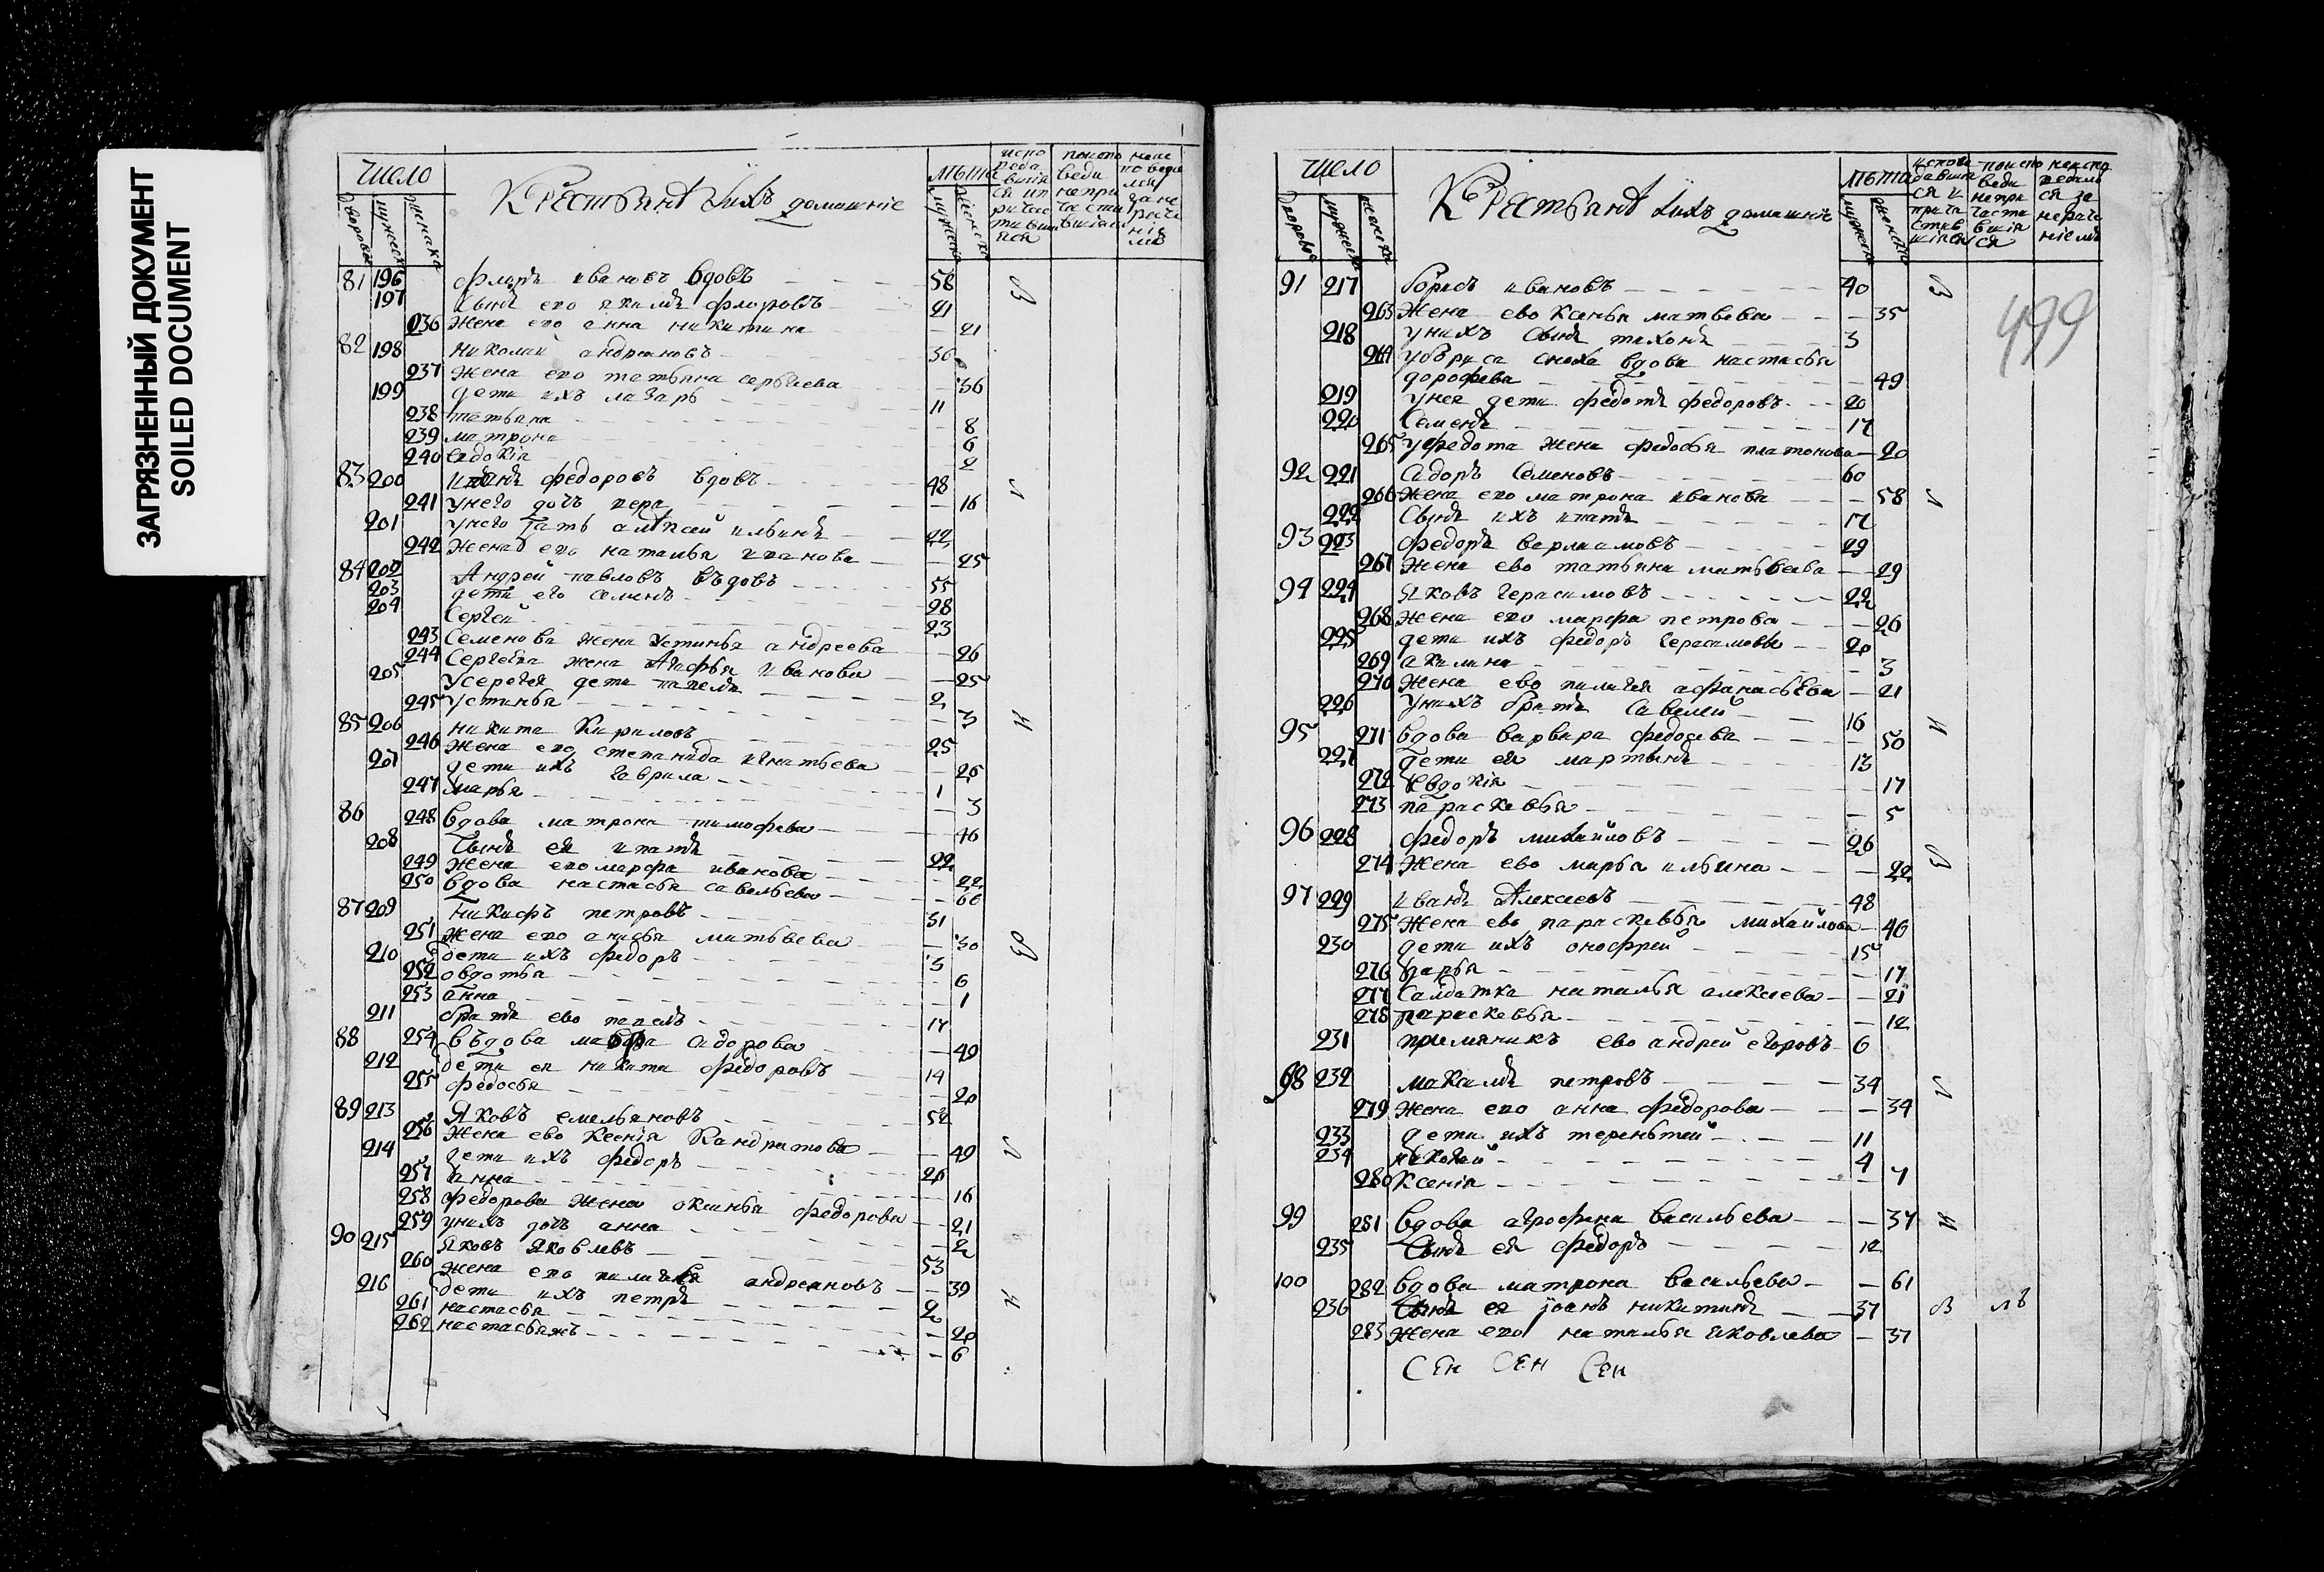 ЗАГРЯЗНЕННЫЙ ДОКУМЕНТ
SOILED DOCUMENT
число
Крестьянѣ и ихъ домашніе
лѣта
81 196 Флоръ ивановъ вдовъ 58
197 Сынъ его якимъ флоровъ 21
236 Жена его анна никитина 21
82 198 николай андреяновъ 36
237 жена его татьяна сергѣева 36
199 дети ихъ лазарь 11
238 татьяна 8
239 матрона 6
240 евдокія 2
83 200 федоровъ вдовъ 48
241 унего дочь вера 16
201 унего зять алѣксей ильинъ 22
242 Жена его наталья иванова 25
84 202 Андрей павловъ въдовъ 55
203 дети его семенъ 28
204 Сергей 23
243 Семенова жена Устинья андреева 26
244 Сергеева жена Агафья иванова 25
205 Усергея дети павелъ 2
245 устинья 3
85 206 никита Кириловъ 25
246 Жена его степанида игнатьева 26
207 дети ихъ гаврила 1
247 марья 3
86 248 вдова матрона тимофева 46
208 Сынъ ея игнатъ 22
249 Жена его марфа иванова 22
250 вдова настасья савельева 66
87 209 никифъ петровъ 31
251 жена его анисья матьвева 30
210 дети ихъ федоръ 3
252 овдотья 6
253 анна 1
211 братъ ево павелъ 17
88 254 въдова сидорова 49
212 дети ея никита федоровъ 14
255 федосья 20
89 213 Яковъ емельяновъ 52
256 Жена ево Ксенія Кандратова 49
214 дети ихъ федоръ 20
257 анна 16
258 федорова жена оксинья федорова 21
259 унихъ дочь анна 2
90 215 Яковъ Яковлевъ 53
260 жена его пилагея андреяновъ 39
216 дети ихъ петръ 2
261 настасья 20
262 6
число
Крестьянѣ и ихъ домашніе
лѣта
499
91 217 борисъ ивановъ 40
263 Жена ево Ксенья матвева 35
218 унихъ сынъ тихонъ 3
264 убориса сноха вдова настасья
дорофева 49
219 унея дети федотъ федоровъ 20
220 Семенъ 17
265 уфедота жена федосья платонова 20
92 221 Сидоръ Семеновъ 60
266 Жена его матрона иванова 58
222 Сынъ ихъ игнатъ 17
93 223 федоръ варламовъ 29
267 Жена ево татьяна матьвева 29
94 224 Яковъ герасимовъ 22
268 Жена его марфа петрова 26
225 дети ихъ федоръ герасимовы 20
269 акилина 3
270 Жена ево пилагея афанасьева 21
226 Унихъ братъ савелей 16
95 271 вдова варвара федосева 50
227 дети ея мартынъ 13
272 Евдокія 17
273 параскевья 5
96 228 федоръ михайловъ 26
274 Жена ево марья ильина 22
97 229 иванъ Алексеевъ 48
275 Жена ево параскевья михайлова 46
230 дети ихъ онофрей 15
276 дарья 17
277 Салдатка наталья алексеева 21
278 параскевья 12
231 племяникъ ево андрей егоровъ 6
98 232 максимъ петровъ 34
279 Жена его анна федорова 34
233 дети ихъ тереньтей 11
234 николай 4
280 Ксенія 7
99 281 вдова агрофена васильева 37
235 Сынъ ея федоръ 12
100 282 вдова матрона васильева 61
236 Сынъ ея іоанъ никитинъ 37
283 Жена его наталья яковлева 37
Сен Сен Сен